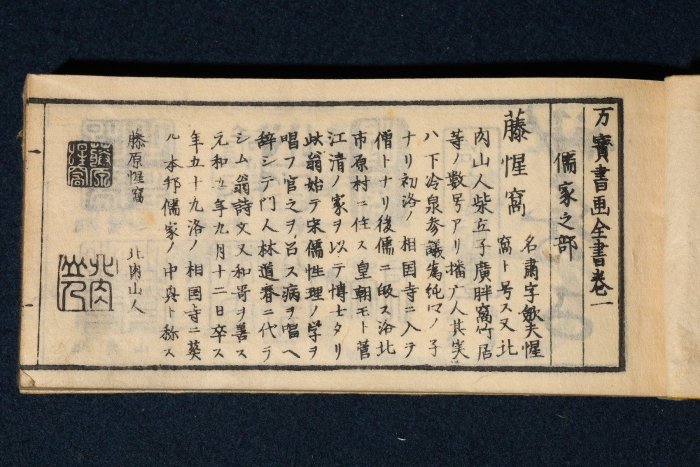 万寶書画全書巻一
儒家之部
藤惺窩
名肅字歛夫惺
窩ト号ス又北
肉山人柴立子廣胖窩竹居
等ノ数号アリ播广人其実
ハ下冷泉参議為純マノ子
ナリ初洛ノ相国寺ニ入ヲ
僧トナリ後儒ニ皈ス洛北
市原村ニ住ス皇朝モト菅
江清ノ家ヲ以テ博士タリ
此翁始テ宋儒性理ノ学ヲ
唱フ官之ヲ召ス病ヲ唱ヘ
辞シテ門人林道春ニ代ラ
シム翁詩文又和哥ヲ善ス
元和五年九月十二日卒ス
年五十九洛ノ相国寺ニ葵
ル本邦儒家ノ中興ト称ス
藤原惺窩
北肉山人
藤原
惺窩
北肉
山人